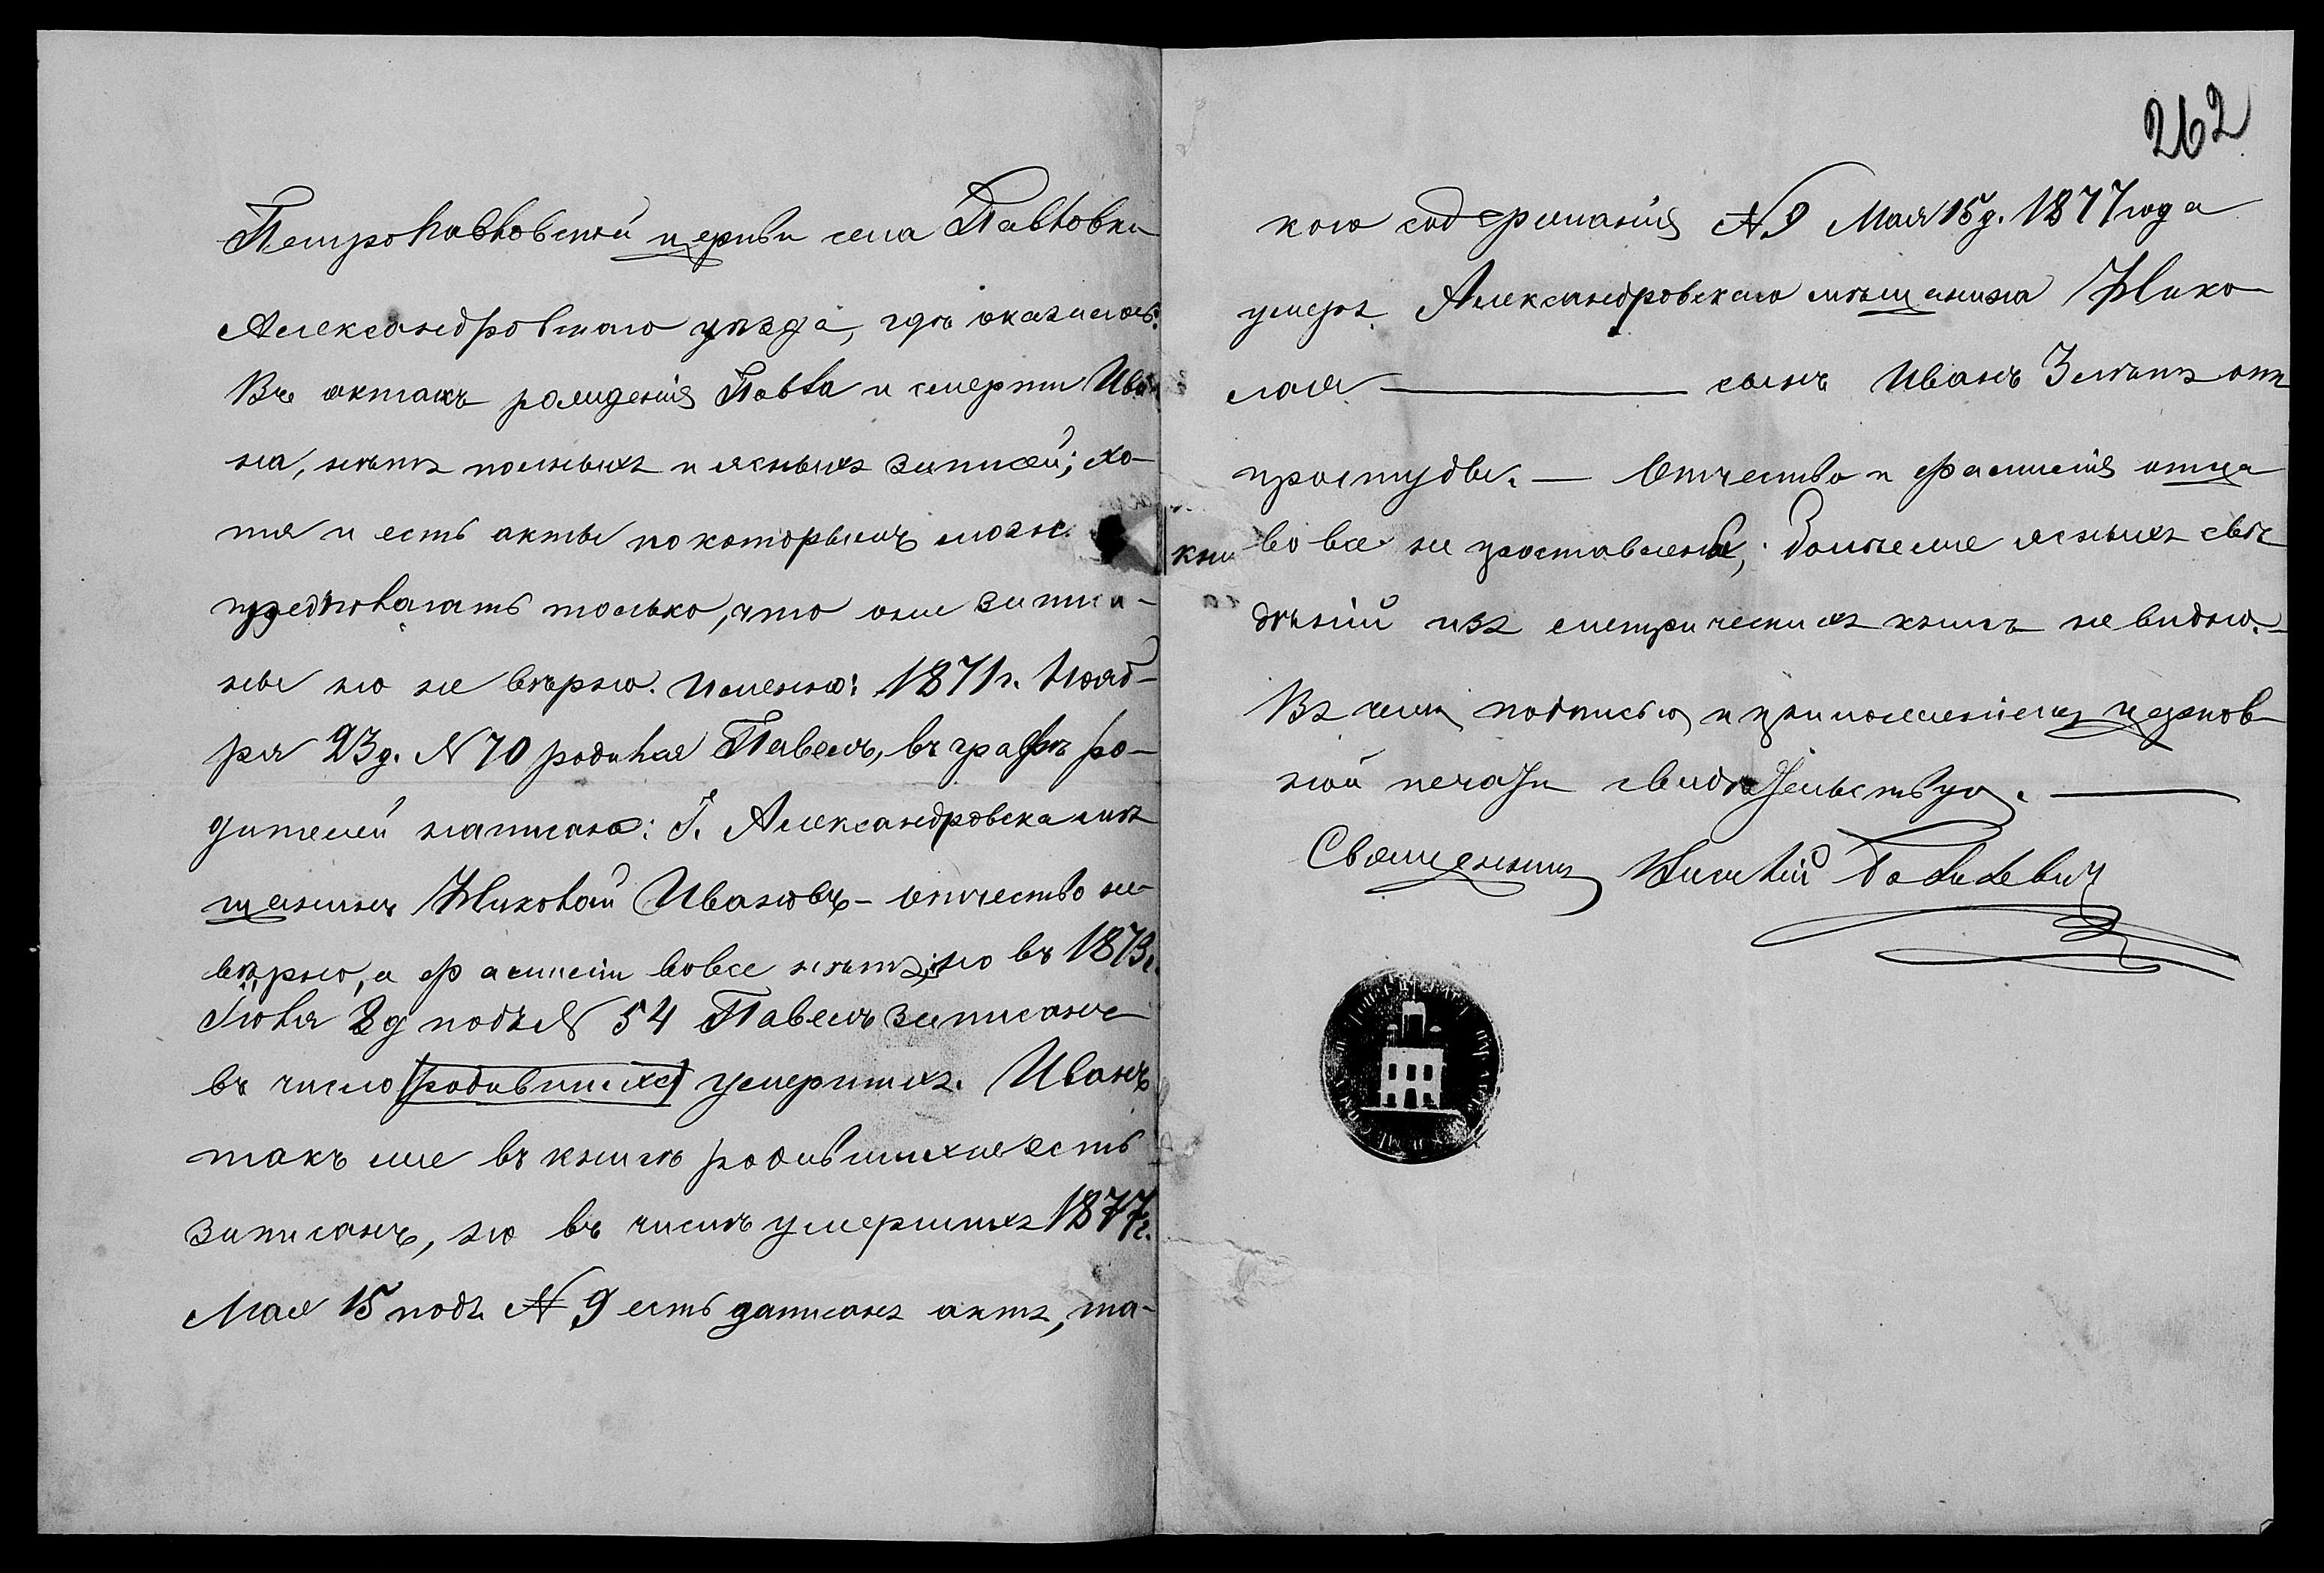 262
Петропавловской церкви села Павловки
Александровскаго уѣзда, гдѣ оказалось:
Въ актахъ рожденія Павла и смерти Ива-
на, нѣтъ полныхъ и ясныхъ записей; хо-
тя и есть акты по которымъ можн
предполагать только, что они записа-
ны но не вѣрно. Именно: 1871 г. Нояб-
ря 23 д. N 70 родился Павелъ, въ графѣ ро-
дителей написано: Г. Александровска мѣ
щанинъ Николай Ивановъ - отчество не
вѣрно, а фамиліи вовсе нѣтъ; но въ 1873 г.
Іюля 2 д подъ N 54 Павелъ записанъ
въ число (родившихся) умершихъ. Иванъ
такъ же въ книгѣ родившихся есть
записанъ, но въ числѣ умершихъ 1877 г.
Мая 15 подъ N 9 есть записанъ актъ, та-
кого содержанія N 9 Мая 15 д. 1877 года
умеръ Александровскаго мѣщанина Нико-
лая — сынъ Иванъ 3 лѣтъ отъ
простуды. — Отчество и фамилія отца
вовсе не проставлены; болѣе же ясныхъ свѣ-
дѣній изъ метрическихъ книгъ не видно. -
Въ чемъ подписью и приложеніемъ церков-
ной печати свидѣтельствую. —
Священникъ